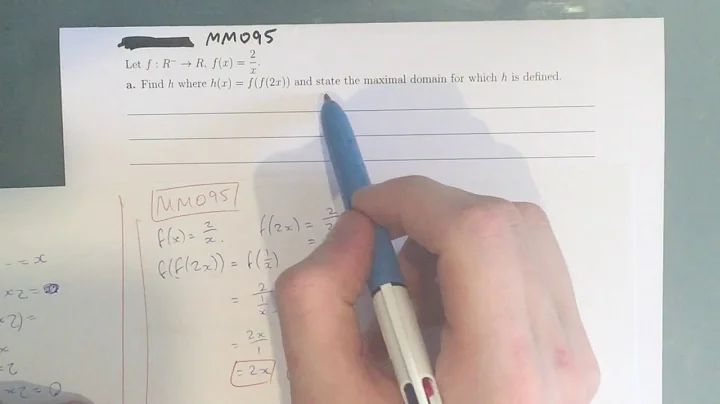 MM095
Let f : R⁻ → R, f(x) = 2/x.
a. Find h where h(x) = f(f(2x)) and state the maximal domain for which h is defined.
MM095
f(x) = 2/x. f(2x) = 2/
f(f(2x)) = f(1/x) =
= 2/(1/x)
= 2x/1
= 2x